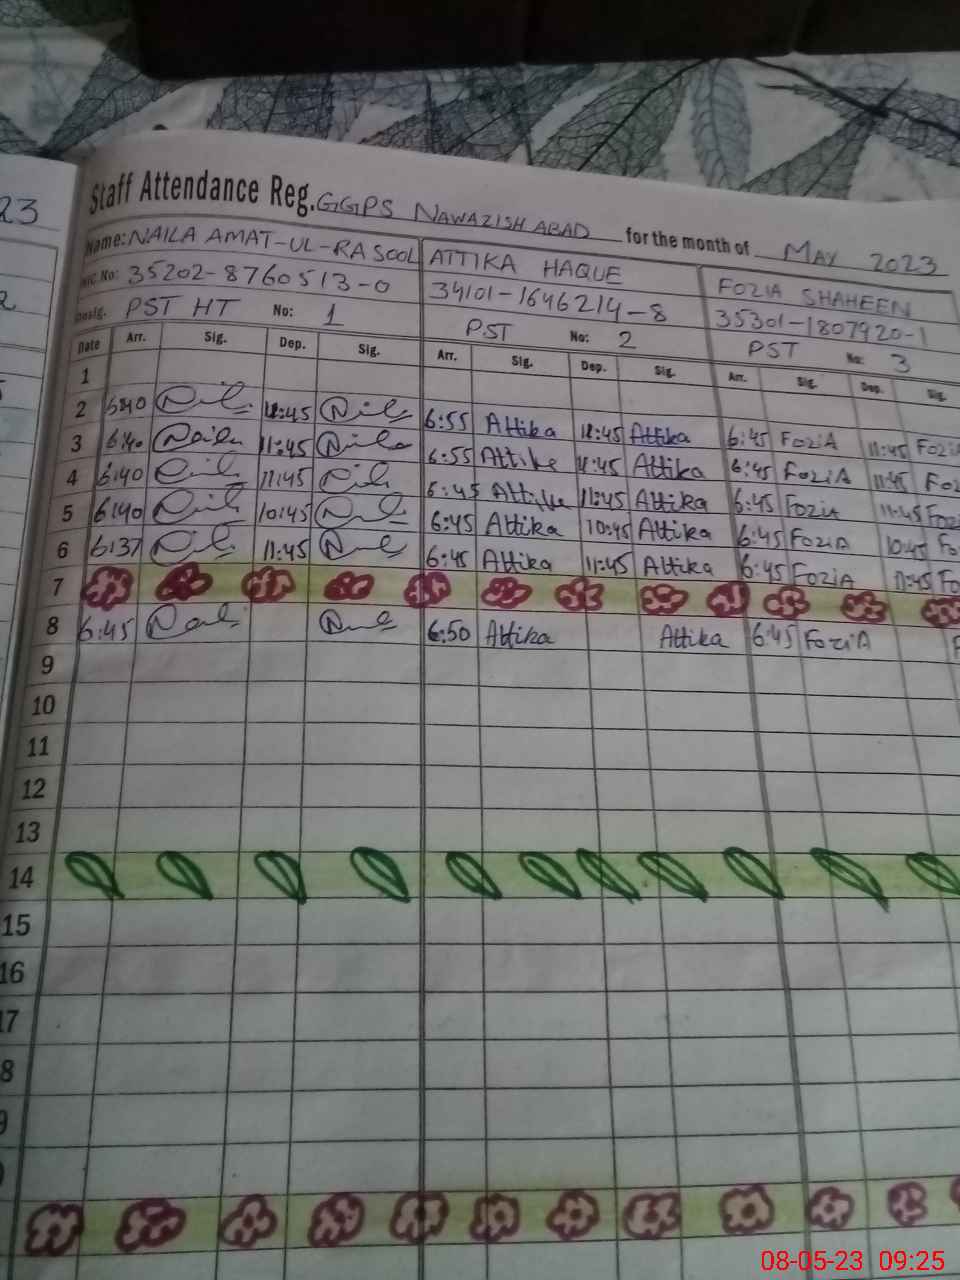 23
Staff Attendance Reg. GGPS NAWAZISH ABAD for the month of MAY 2023
Name: NAILA AMAT-UL-RASOOL ATTIKA HAQUE FOZIA SHAHEEN
NIC No: 35202-8760513-0 34101-1646214-8 35301-1807920-1
Desig. PST HT No: 1 PST No: 2 PST No: 3
Date Arr. Sig. Dep. Sig. Arr. Sig. Dep. Sig. Arr. Sig. Dep. Sig.
1
2 6:40 11:45 6:55 Attika 11:45 Attika 6:45 FoziA 11:45 Fozi
3 6:40 Naila 11:45 Naila 6:55 Attika 11:45 Attika 6:45 FoziA 11:45 Fo
4 6:40 11:45 6:45 Attika 11:45 Attika 6:45 FoziA 11:45 Fozi
5 6:40 10:45 6:45 Attika 10:45 Attika 6:45 FoziA 10:45 Fo
6 6:37 11:45 6:45 Attika 11:45 Attika 6:45 FoziA 11:45 Fo
7
8 6:45 6:50 Attika Attika 6:45 FoziA F
9
10
11
12
13
14
15
16
17
8
9
08-05-23 09:25